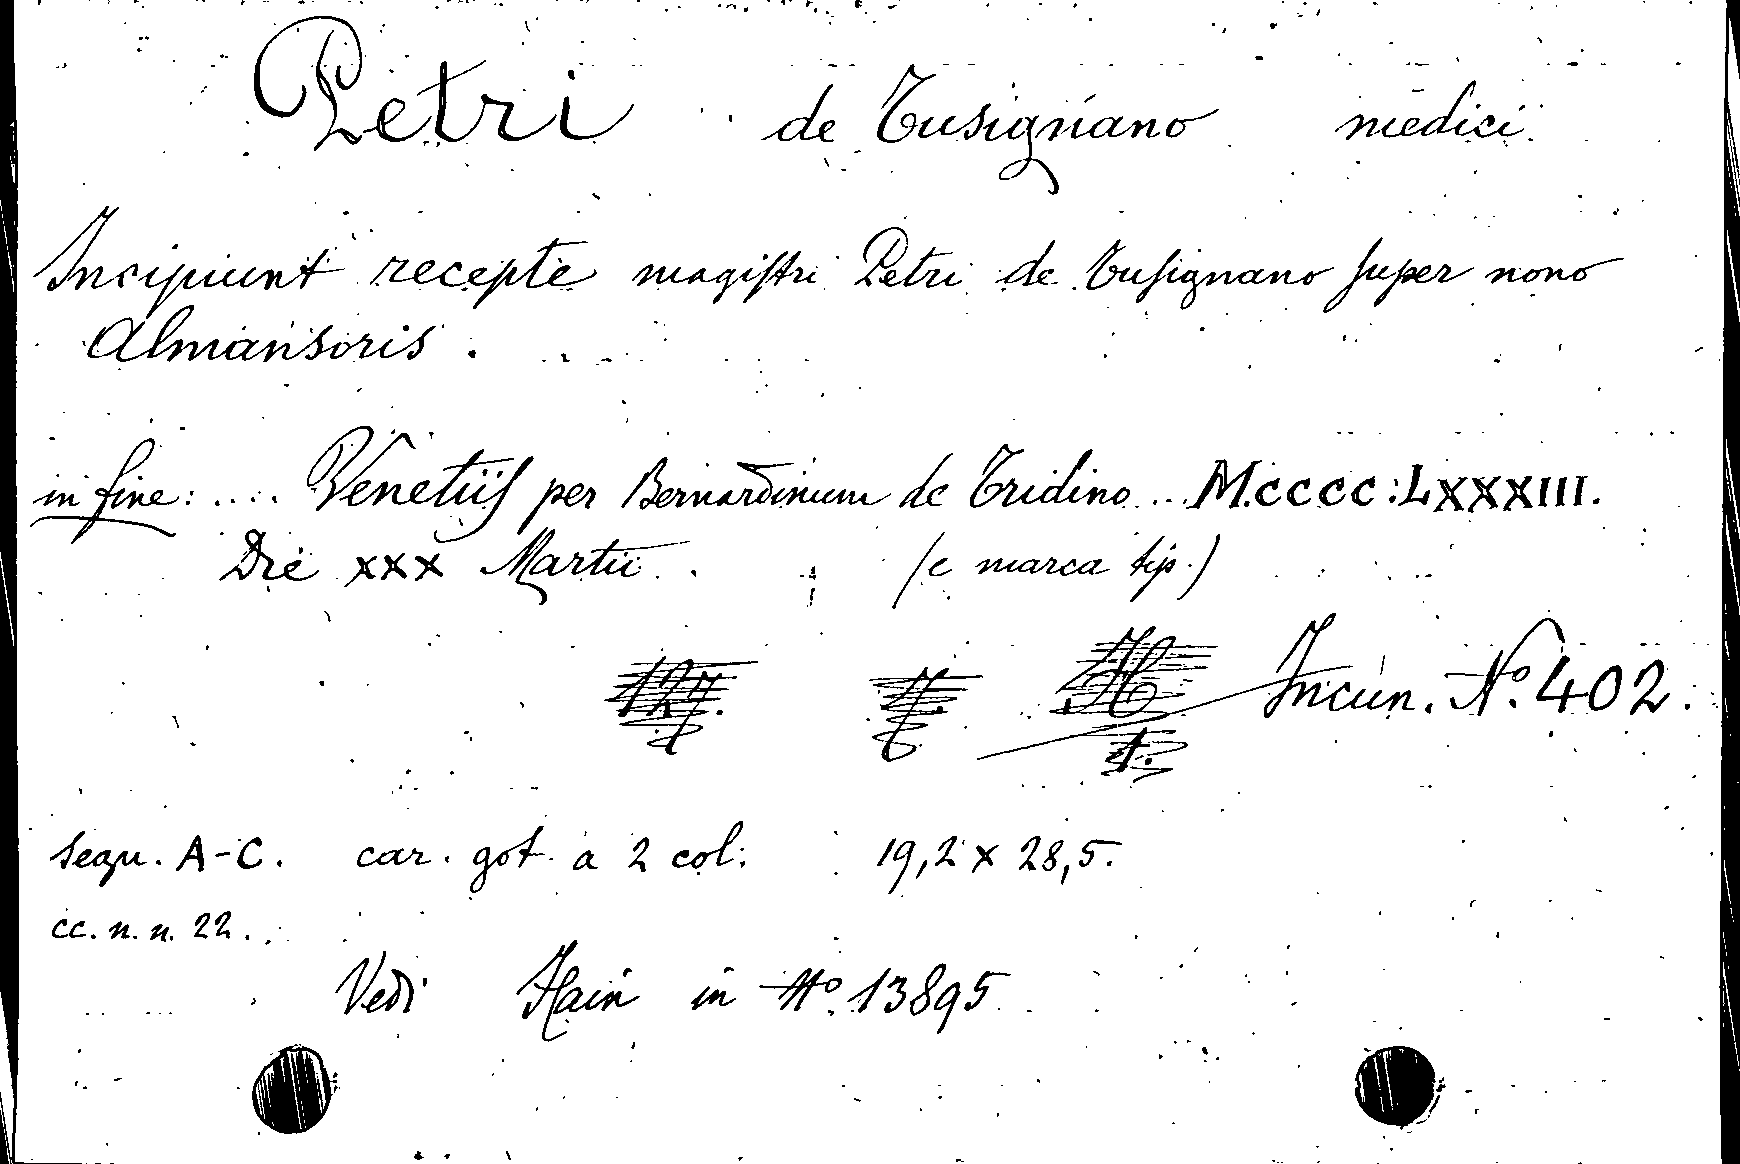 Petri de Tusignano medici
Incipiunt recepte magiſtri Petri de Tuſignano ſuper nono
Almansoris.
in fine: .... Venetiiſ per Bernardinum de Tridino ... M.CCCC:LXXXIII.
Die XXX Martii. (e marca tip.)
127. 7. H Incun. Nº. 402.
1.
segn. A-C. car. got. a 2 col: 19,2 x 28,5.
cc. n. n. 22.
Vedi Hain in Nº. 13895